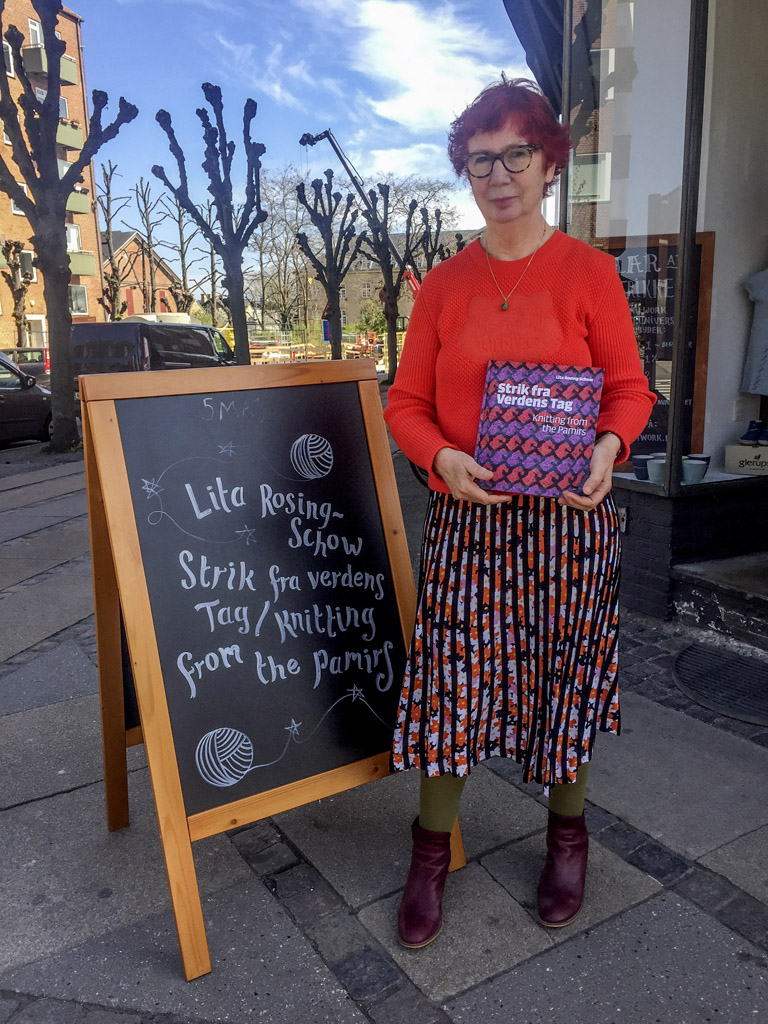 5 MAJ
Lita Rosing-
Schow
Strik fra verdens
Tag / Knitting
from the Pamirs
Lita Rosing-Schow
Strik fra
Verdens Tag
Knitting from
the Pamirs
glerups